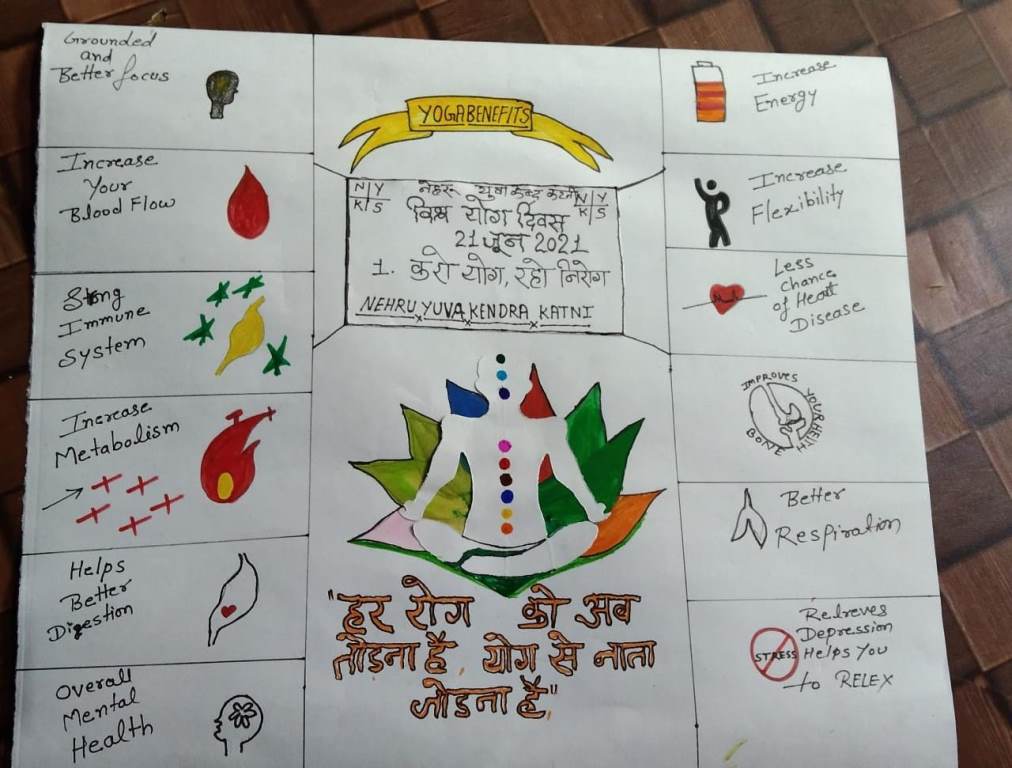 Grounded
and
Better focus
Increase
Your
Blood Flow
Strong
Immune
System
Increase
Metabolism
Helps
Better
Digestion
Overall
Mental
Health
YOGA BENEFITS
N Y
K S
नेहरू युवा केन्द्र कटनी
N Y
K S
विश्व योग दिवस
21 जून 2021
1. करो योग, रहो निरोग
NEHRU YUVA KENDRA KATNI
"हर रोग को अब
तोड़ना है, योग से नाता
जोडना है"
Increase
Energy
Increase
Flexibility
Less
Chance
of Heart
Disease
IMPROVES
YOUR HELTH
BONE
Better
Respiration
STRESS
Relreves
Depression
Helps You
to RELEX